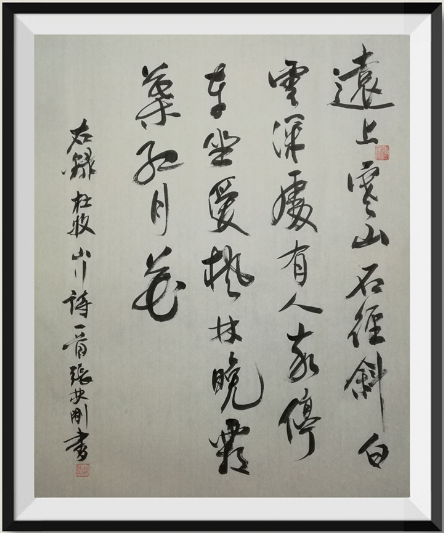 遠上寒山石徑斜白
雲深處有人家停
車坐愛楓林晚霜
葉紅月花
右錄杜牧山行詩一首張剛書